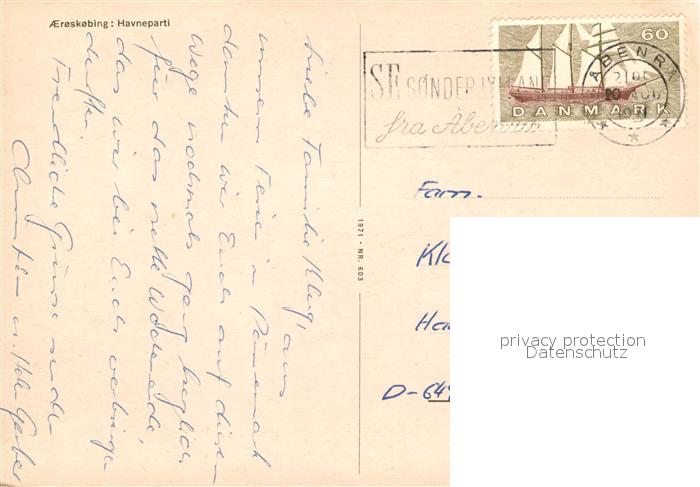 Ærøskøbing : Havneparti
Liebe Familie Klug,
aus
unserm Ferien in Dänemark
danken wir Euch auf diesem
Wege nochmals ganz herzlich
für das nette Wochenende,
das wir bei Euch verbringen
durften.
Freundliche Grüsse senden
u. Gerber
1971 · NR. 603
SE SØNDERJYLLAND
fra Åbenrå
ÅBENRÅ
60
DANMARK
Fam.
Kl
Ha
D-64
privacy protection
Datenschutz